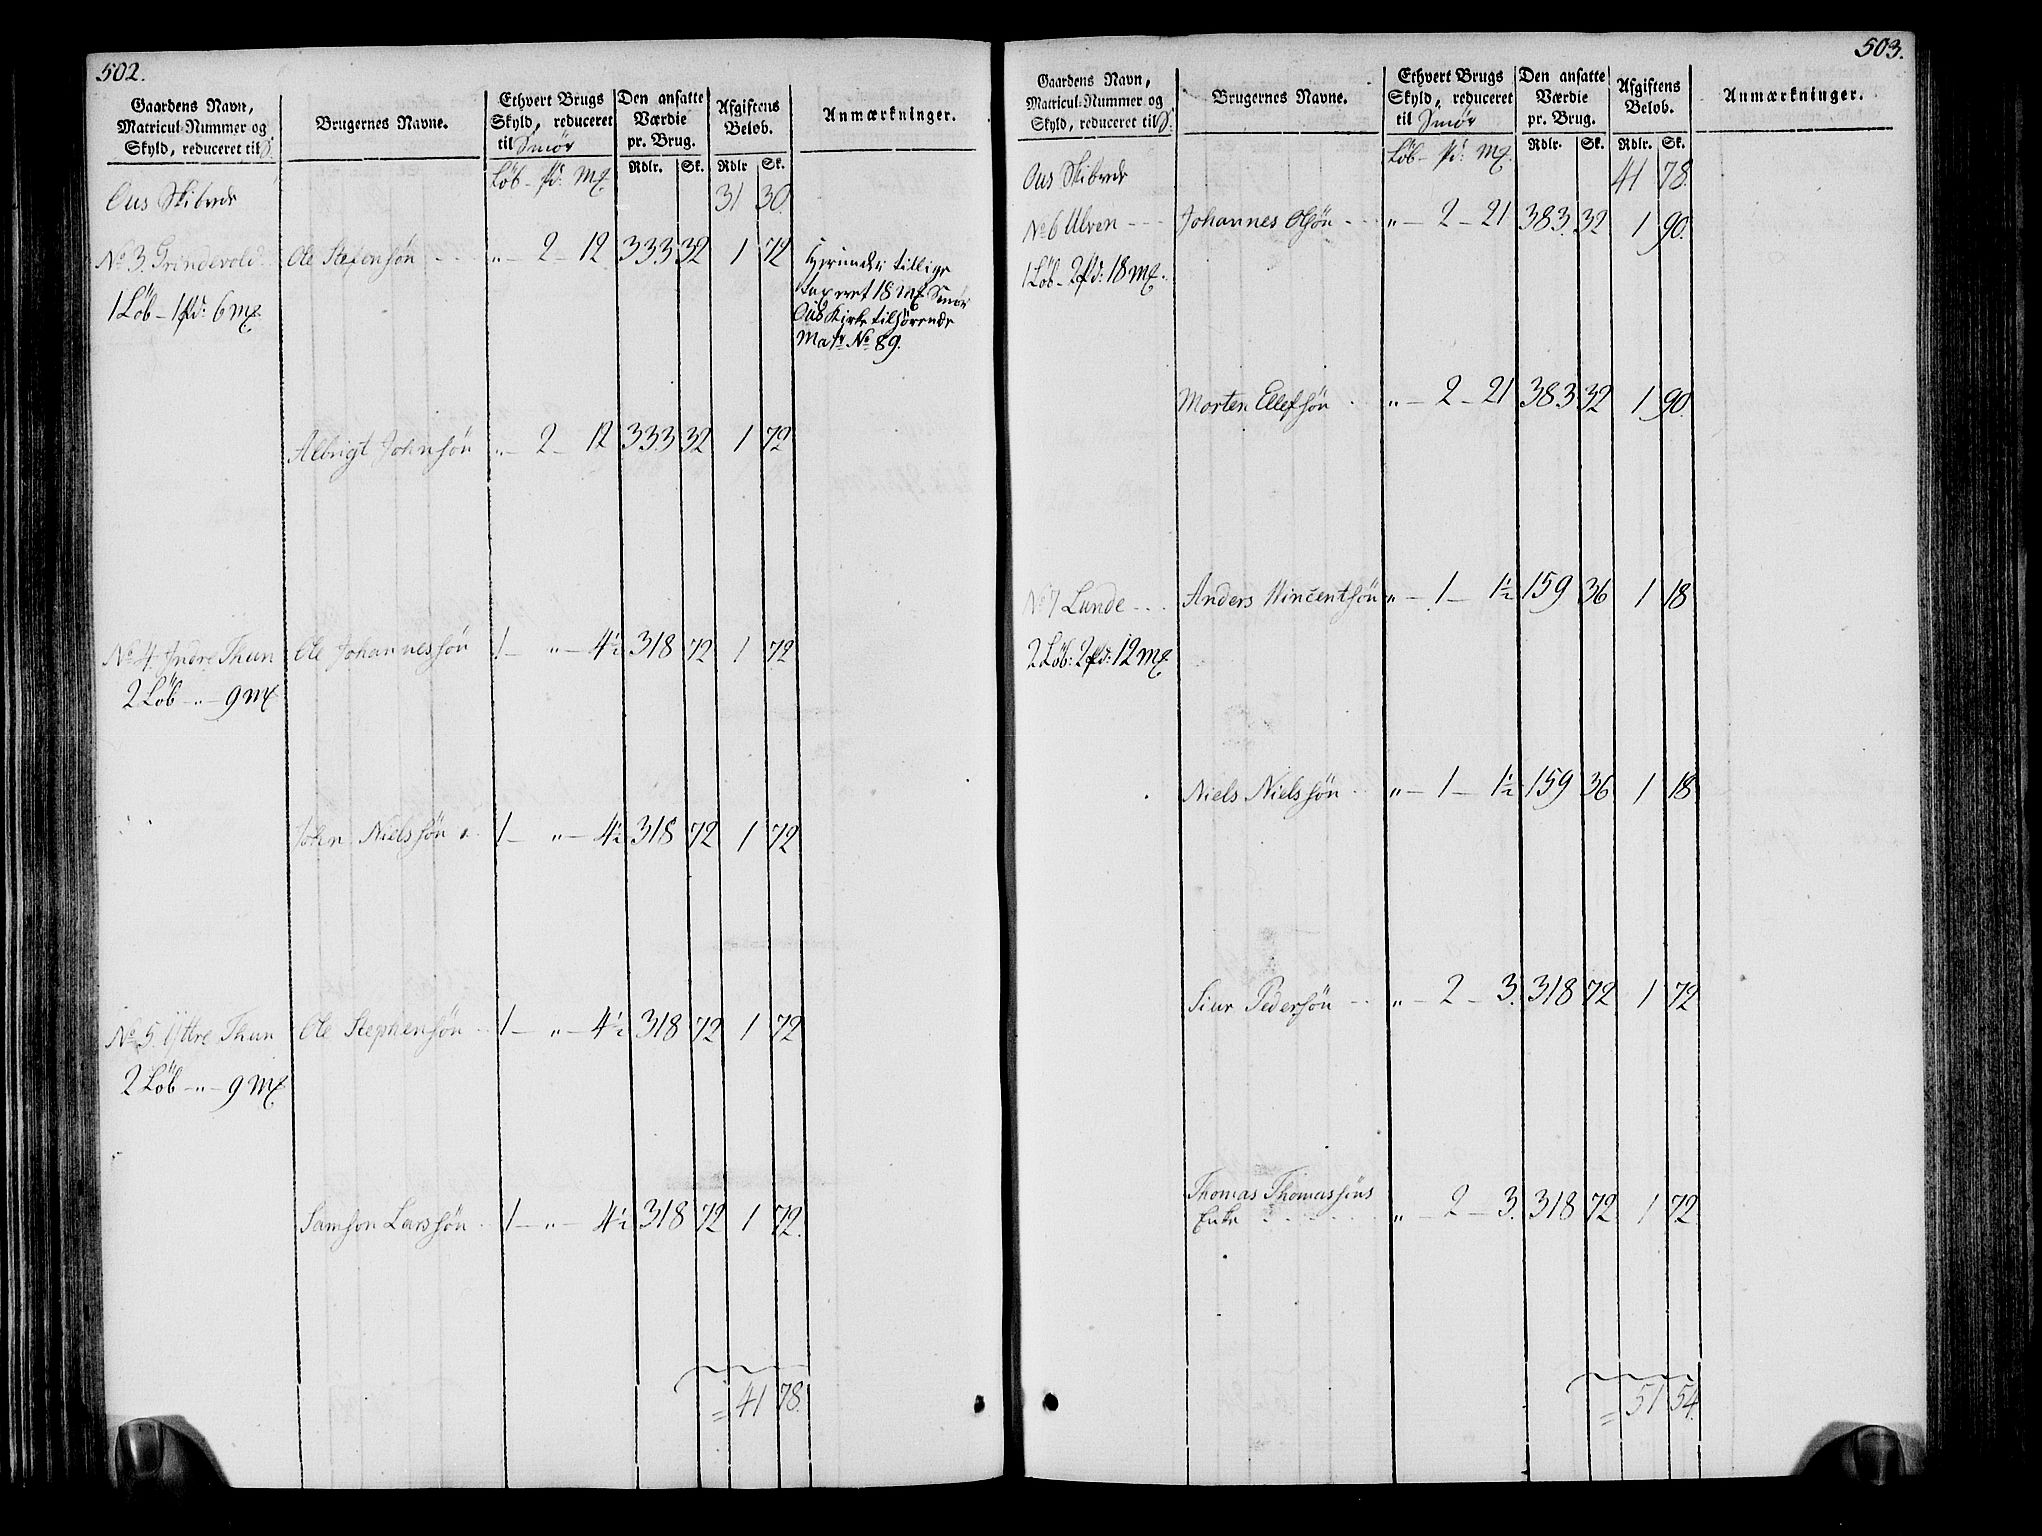 502.
Gaardens Navn, Matricul-Nummer og Skyld, reduceret til
Brugernes Navne.
Ethvert Brugs Skyld, reduceret til Smör
Den ansatte Værdie pr. Brug.
Afgiftens Belob.
Anmærkninger.
Löb - pd: Mk
Rdlr. Sk. Rdlr Sk.
Ous Skibrede 31 30.
No 3. Grindevold Ole Stefensön " - 2 - 12 333 32 1 72
1 Löb - 1 pd: 6 mk
Herunder tillige
taxeret 18 Mk Smör
Ous Kirke tilhörende
Matr No 89.
Albrigt Johnsön " - 2 - 12 333 32 1 72
No 4. Indre Thun Ole Johannessön 1 - " - 4½ 318 72 1 72
2 Löb - " - 9 Mk
John Nielssön 1 - " - 4½ 318 72 1 72
No 5. Yttre Thun Ole Stephensön 1 - " - 4½ 318 72 1 72
2 Löb - " - 9 Mk
Samson Larssön 1 - " - 4½ 318 72 1 72.
= 41 78.
503.
Gaardens Navn, Matricul-Nummer og Skyld, reduceret til
Brugernes Navne.
Ethvert Brugs Skyld, reduceret til Smör
Den ansatte Værdie pr. Brug.
Afgiftens Belob.
Anmærkninger.
Löb - pd: Mk
Rdlr. Sk. Rdlr. Sk.
Ous Skibrede 41 78.
No 6 Ulven Johannes Olsön " - 2 - 21 383 32 1 90.
1 Löb - 2 pd: 18 mk.
Morten Ellefsön " - 2 - 21 383 32 1 90.
No 7 Lunde Anders Vincentsön " - 1 - 1½ 159 36 1 18
2 Löb: 2 pd: 12 mk
Niels Nielssön " - 1 - 1½ 159 36 1 18
Siur Pedersön " - 2 - 3. 318 72 1 72
Thomas Thomassöns
Enke " - 2 - 3. 318 72 1 72
= 51 54.